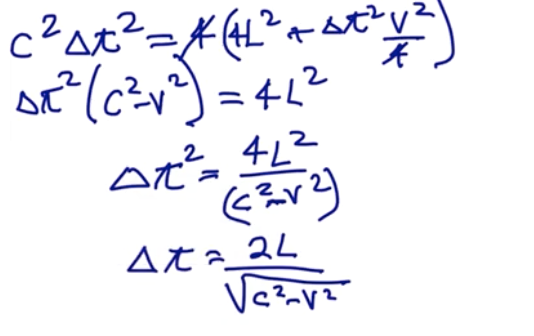 c²Δt² = 4(4L² + Δt² v²/4)
Δt²(c²-v²) = 4L²
Δt² = 4L²/(c²-v²)
Δt = 2L/√(c²-v²)